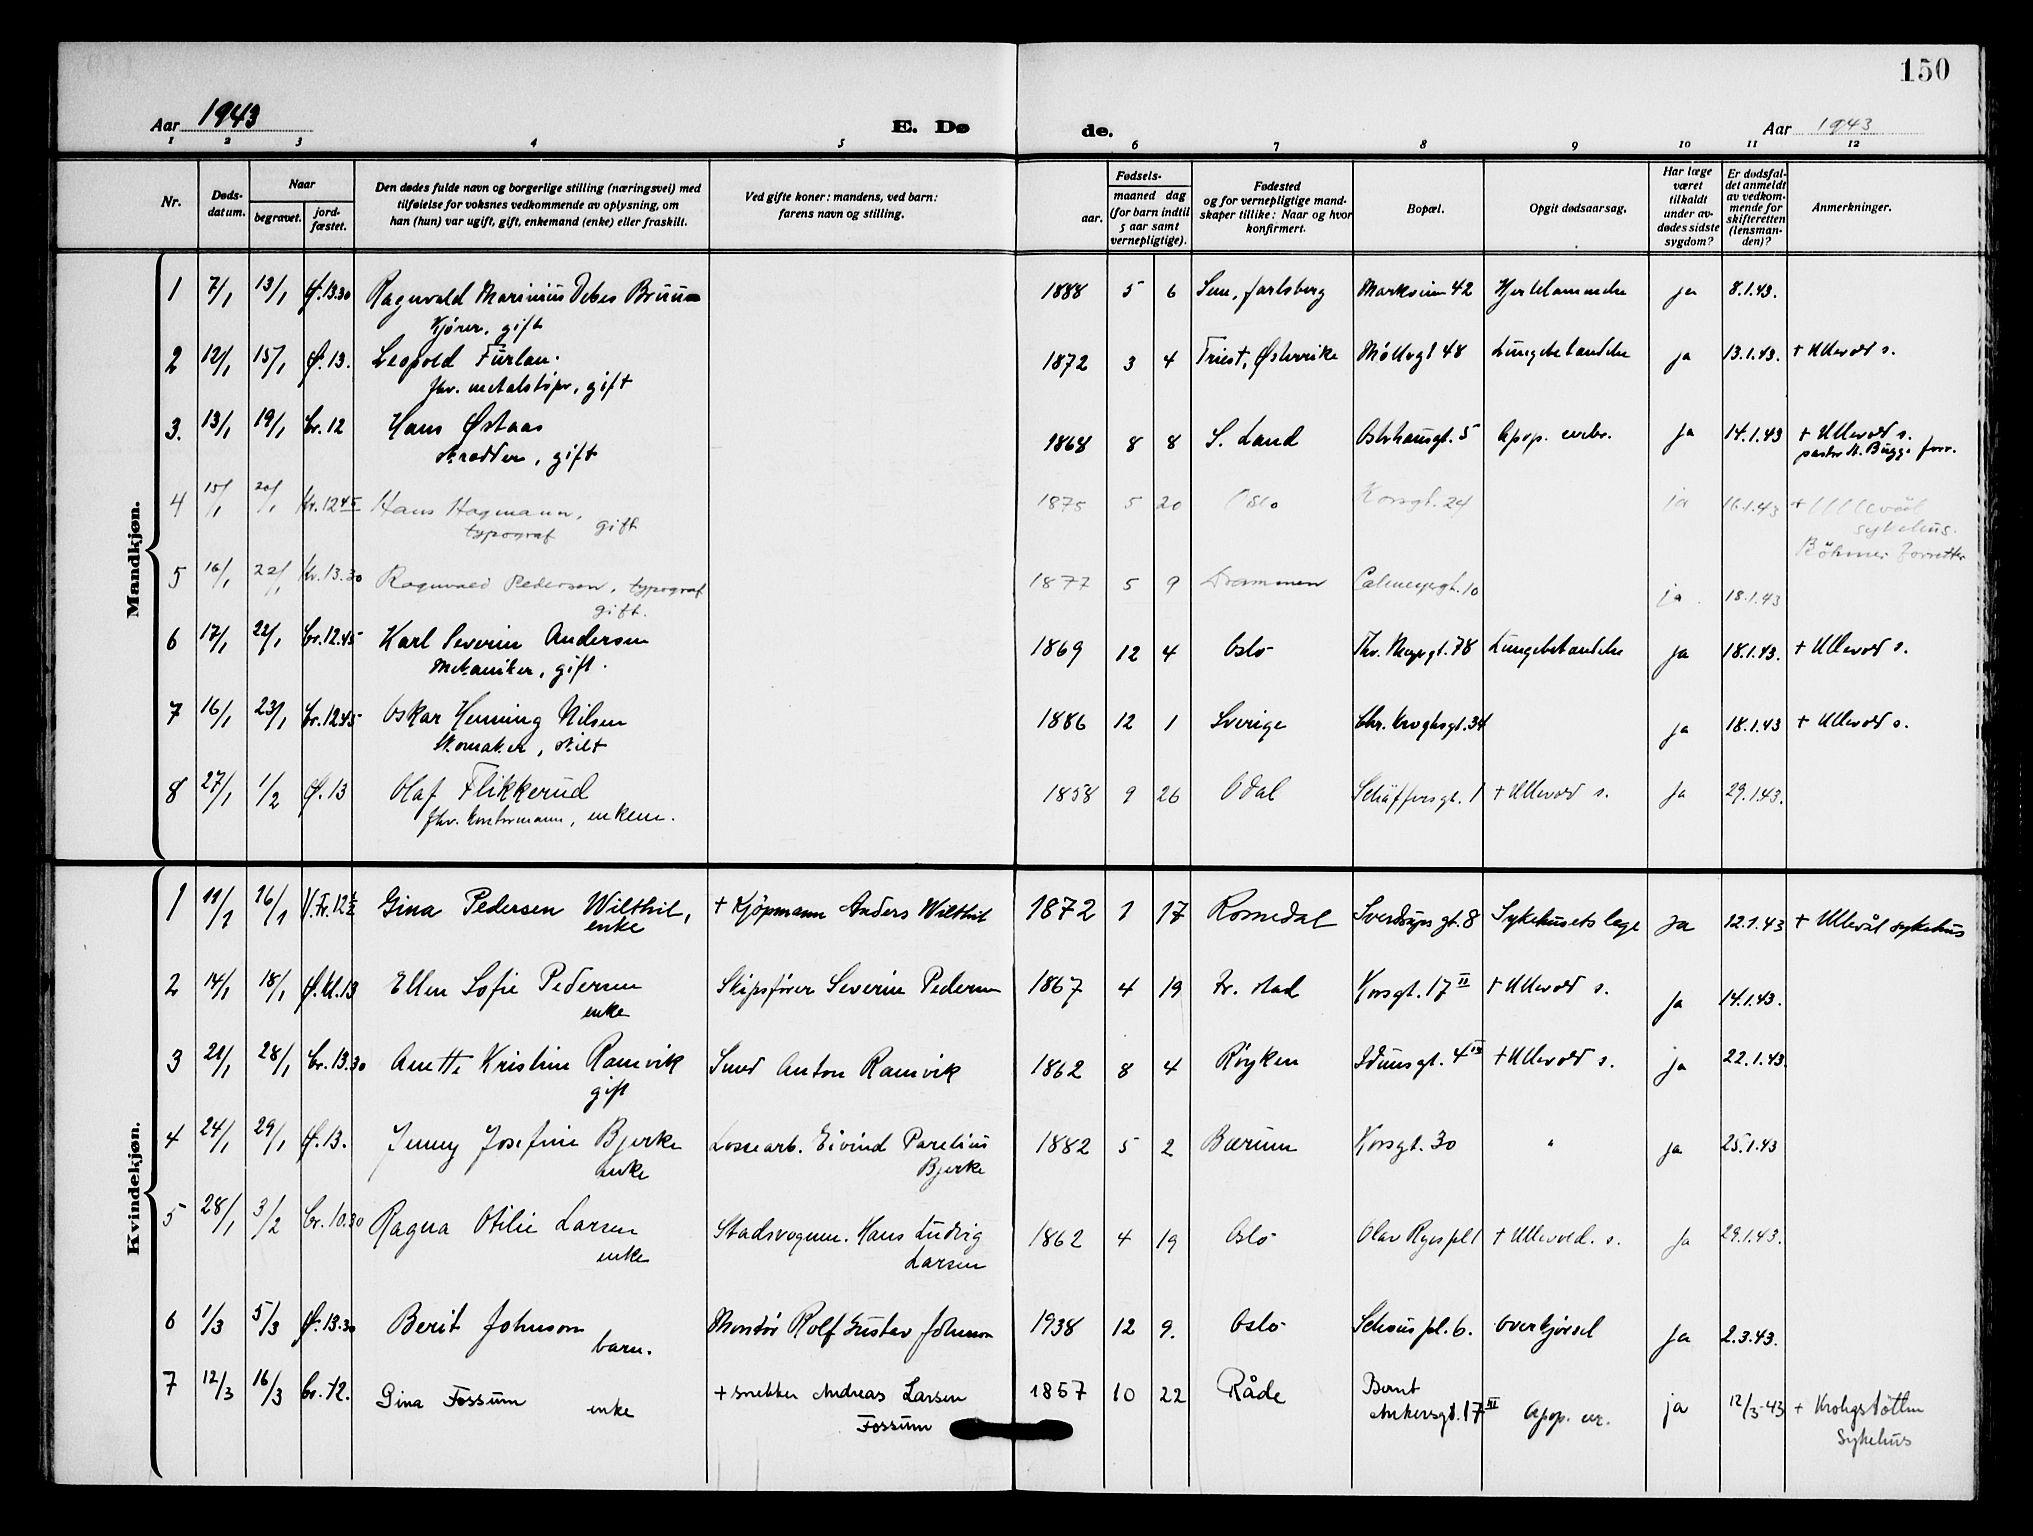 150
Aar 1943
E. Dø
de.
Aar 1943
1 2 3 4 5 6 7 8 9 10 11 12
Nr.
Døds-
datum.
Naar
begravet.
jord-
fæstet.
Den dødes fulde navn og borgerlige stilling (næringsvei) med
tilføielse for voksnes vedkommende av oplysning, om
han (hun) var ugift, gift, enkemand (enke) eller fraskilt.
Ved gifte koner: mandens, ved barn:
farens navn og stilling.
Fødsels-
aar.
maaned dag
(for barn indtil
5 aar samt
vernepligtige).
Fødested
og for vernepligtige mand-
skaper tillike: Naar og hvor
konfirmert.
Bopæl.
Opgit dødsaarsag.
Har læge
været
tilkaldt
under av-
dødes sidste
sygdom?
Er dødsfal-
det anmeldt
av vedkom-
mende for
skifteretten
(lensman-
den)?
Anmerkninger.
Mandkjøn.
1 7/1 13/1 Ø.13.30 Ragnvald Marinius Debes Bruun 1888 5 6 Sem, Jarlsberg 42 ja 8.1.43.
Kjører, gift
2 12/1 15/1 Ø.13. Leopold Furlan. 1872 3 4 Triest, Østerrike Møllergt 48 Lungebetændelse ja 13.1.43. + Ullevål s.
gift
3. 13/1 19/1 Cr.12 Hans Østaas 1868 8 8 S. Land Osterhausgt. 5 Apop. cerebr. ja 14.1.43 + Ullevål s.
skredder, gift
pastor Bugge forr.
4 15/1 20/1 Kr.12 45 Hans Hagmann, 1875 5 20 Oslo Korsgt. 24 ja 16.1.43 + Ullevål
typograf gift
sykehus.
Böhmer forretter
5 16/1 22/1 Kr.13.30 Ragnvald Pedersen, typograf 1877 5 9 Drammen Calmeyergt. 10 ja 18.1.43
gift.
6 17/1 22/1 Cr.12.45 Karl Severin Andersen 1869 12 4 Oslo Thv. Meyergt. 78 Lungebetændelse ja 18.1.43. + Ullevål s.
Mekaniker, gift.
7 16/1 23/1 Cr.12.45 Oskar Henning Nilsen 1886 12 1 Sverige Chr. Kroghsgt. 34 ja 18.1.43 + Ullevål s.
Skomaker, skilt
8 27/1 1/2 Ø.13 Olaf Flikkerud 1858 9 26 Odal Schäffersgt. 1 + Ullevål s. ja 29.1.43.
fhv. kontormann, enkem.
Kvindekjøn.
1 11/1 16/1 V.Fr.12½ Gina Pedersen Wilthil, + Kjøpmann Anders Wilthil 1872 1 17 Romedal Sverdrups gt. 8 Sykehusets lege ja 12.1.43 + Ullevål sykehus
enke
2 14/1 18/1 Ø.kl.13 Ellen Sofie Pedersen Skipsfører Severin Pedersen 1867 4 19 Fr. stad Korsgt. 17 II + Ullevål s. ja 14.1.43.
enke
3 21/1 28/1 Cr.13.30 Anette Kristine Ramvik Smed Anton Ramvik 1862 8 4 Røyken Idunsgt. 4 + Ullevål s. ja 22.1.43.
gift
4 24/1 29/1 Ø.13. Jenny Josefine Bjerke Lossearb. Eivind Parelius 1882 5 2 Bærum Korsgt. 30 " ja 25.1.43
enke
Bjerke
5 28/1 3/2 Cr.10.30 Ragna Otilie Larsen Stadsvognm. Hans Ludvig 1862 4 19 Oslo Olav Ryes pl 1 + Ullevål. s. ja 29.1.43.
enke
Larsen
6 1/3 5/3 Ø.13.30 Berit Johnson Montør Rolf Gustav Johnson 1938 12 9. Oslo Schous pl. 6. overkjørsel ja 2.3.43.
barn.
7 12/3 16/3 Cr.12. Gina Fossum + snekker Andreas Larsen 1857 10 22 Råde Bernt
enke
Fossum
Ankersgt. 17 III Apop. cer. ja 12/3-43 + Krohgstøtten
Sykehus